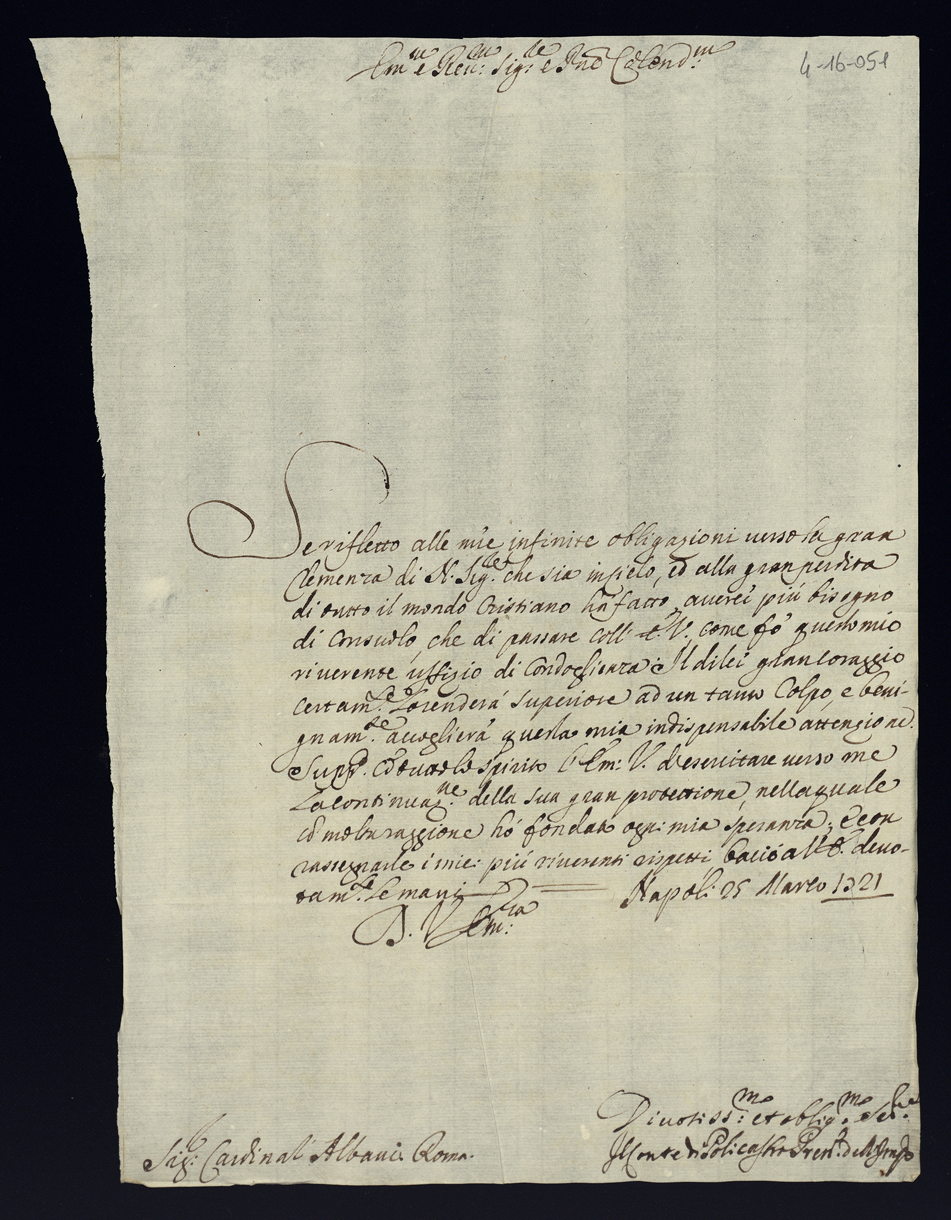 Em.mo e Rev.mo Sig.re e Pne Colend.mo
4-16-051
Se rifletto alle mie infinite obligazioni verso la gran
Clemenza di N. Sig.re che sia in Cielo, ed alla gran perdita
di tutto il mondo Cristiano hà fatto, averei più bisogno
di Consuolo, che di passare coll' E. V. come fò questo mio
riverente uffizio di Condoglienza: Il di lei gran Coraggio
certam.te La renderà superiore ad un tanto Colpo, e beni-
gnam.te accoglierà questa mia indispensabile attenzione.
Supp.co con tutto lo spirito l'Em: V. d'esercitare verso me
La continuaz.ne della sua gran protettione, nella quale
con molta raggione hò fondato ogni mia speranza; e con
rassegnarle i miei più riverenti rispetti bacio all' E. V. devo-
tam.te Le mani
Napoli 25 Marzo 1721
D. V. Em.za
Divotiss.mo et oblig.mo Ser.re
Sig.r Cardinal Albani Roma.
Il Conte di Policastro